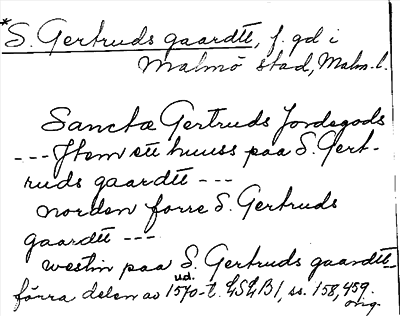 *S. Gertruds gaardtt, f. gd i
Malmö stad, Malm. l.
Sanctæ Gertruds Jordagods
--- Jtem ett huuss paa S. Gert-
ruds gaardtt ---
norden forre S. Gertruds
gaardtt ---
westin paa S. Gertruds gaardtt-
ud.
förra delen av 1570-t. LSLB1, ss. 158, 459.
orig.